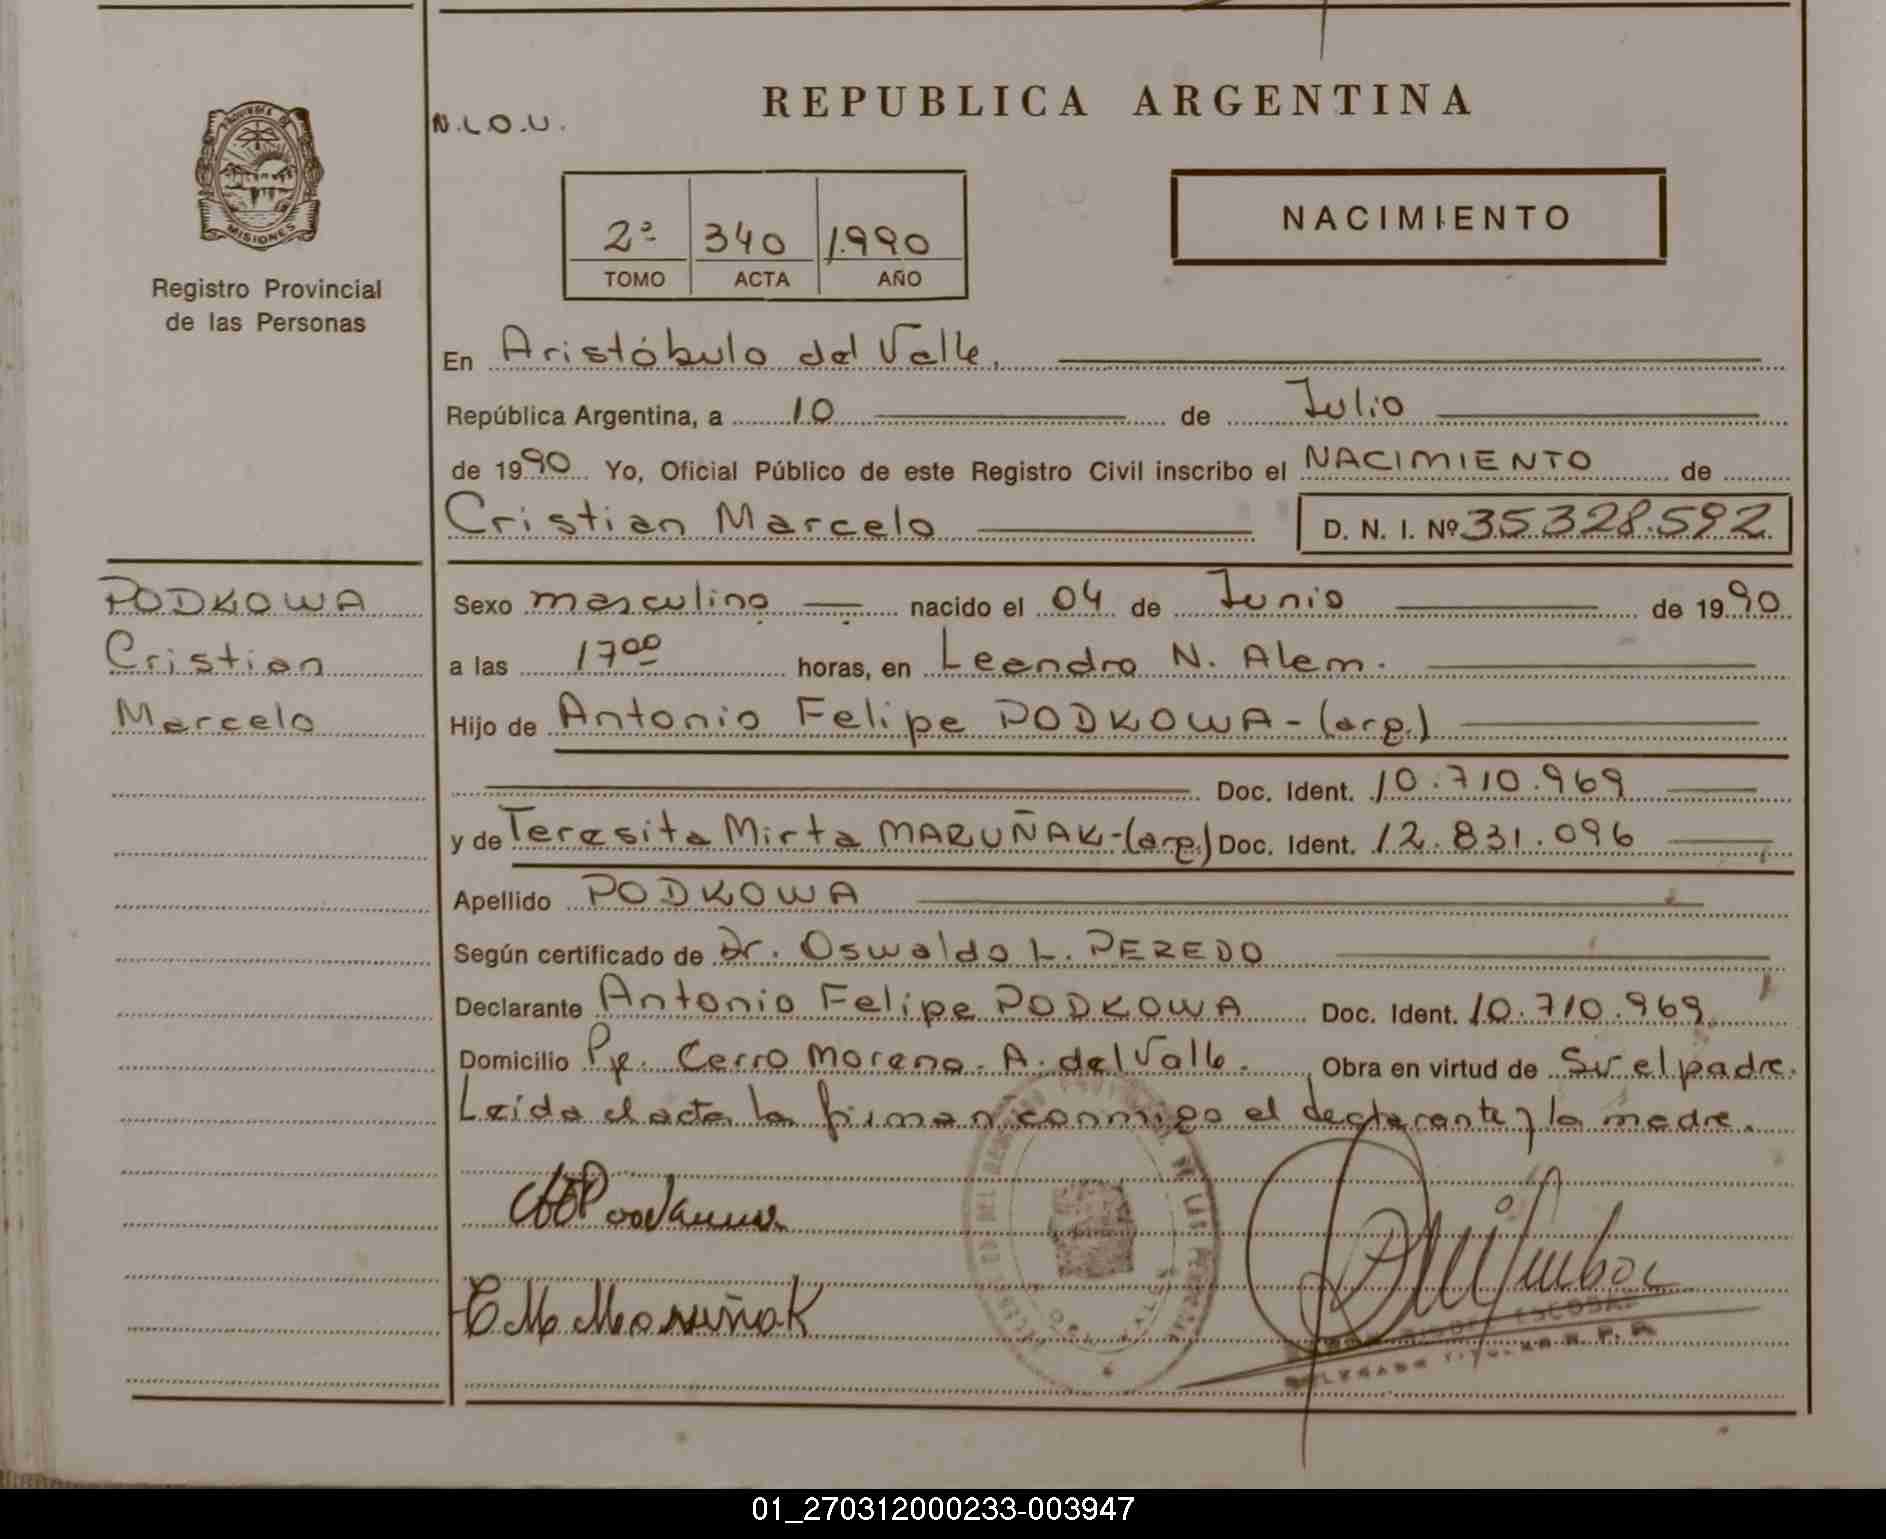 REPUBLICA ARGENTINA
N.L.O.U.
MISIONES
Registro Provincial
de las Personas
2º 340 1990
TOMO ACTA AÑO
NACIMIENTO
En Aristóbulo del Valle.
República Argentina, a 10 de Julio
de 1990 Yo, Oficial Público de este Registro Civil inscribo el NACIMIENTO de
Cristian Marcelo D. N. I. Nº 35.328.592
PODKOWA
Cristian
Marcelo
Sexo masculino nacido el 04 de Junio de 1990
a las 17 00 horas, en Leandro N. Alem.
Hijo de Antonio Felipe PODKOWA-(arg.)
Doc. Ident. 10.710.969
y de Teresita Mirta MARUÑAK-(arg.) Doc. Ident. 12.831.096
Apellido PODKOWA
Según certificado de Dr. Oswaldo L. PEREDO
Declarante Antonio Felipe PODKOWA Doc. Ident. 10.710.969
Domicilio Pje. Cerro Moreno. A. del Valle. Obra en virtud de Ser el padre.
Leída el acta la firman conmigo el declarante y la madre.
ESCOBAR
DELEGADO TITULAR R. P.
01_270312000233-003947